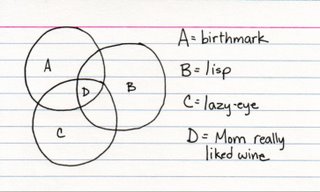 A
B
D
C
A= birthmark
B= lisp
C= lazy-eye
D= Mom really
liked wine